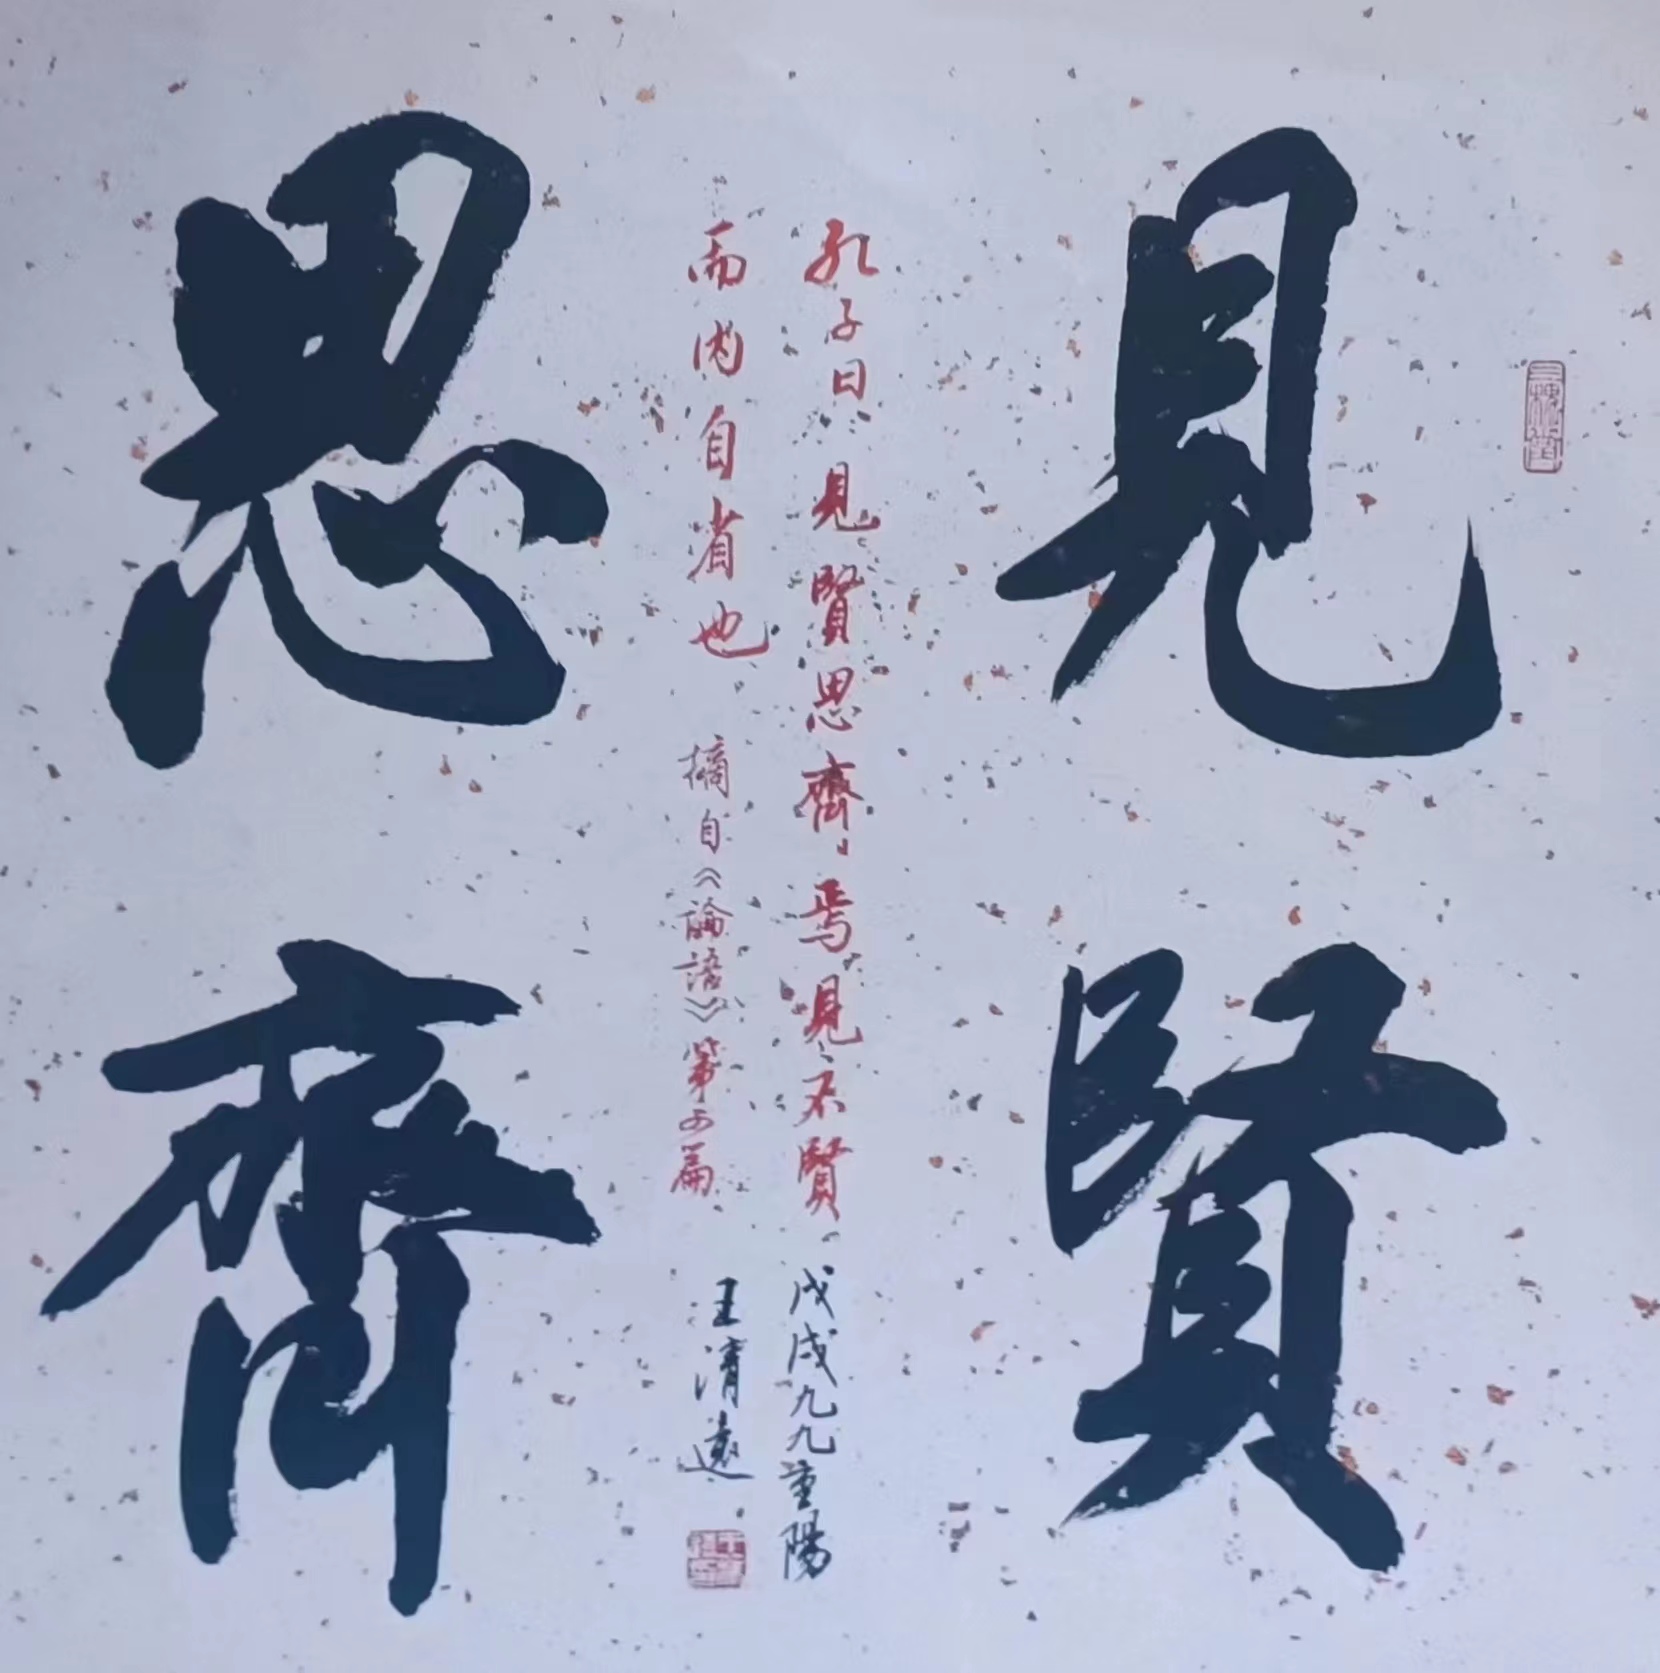 三槐堂
見賢
思齊
孔子曰見賢思齊、焉見不賢
而内自省也
摘自《論語》第五篇
戊戌九九重陽
王清遠